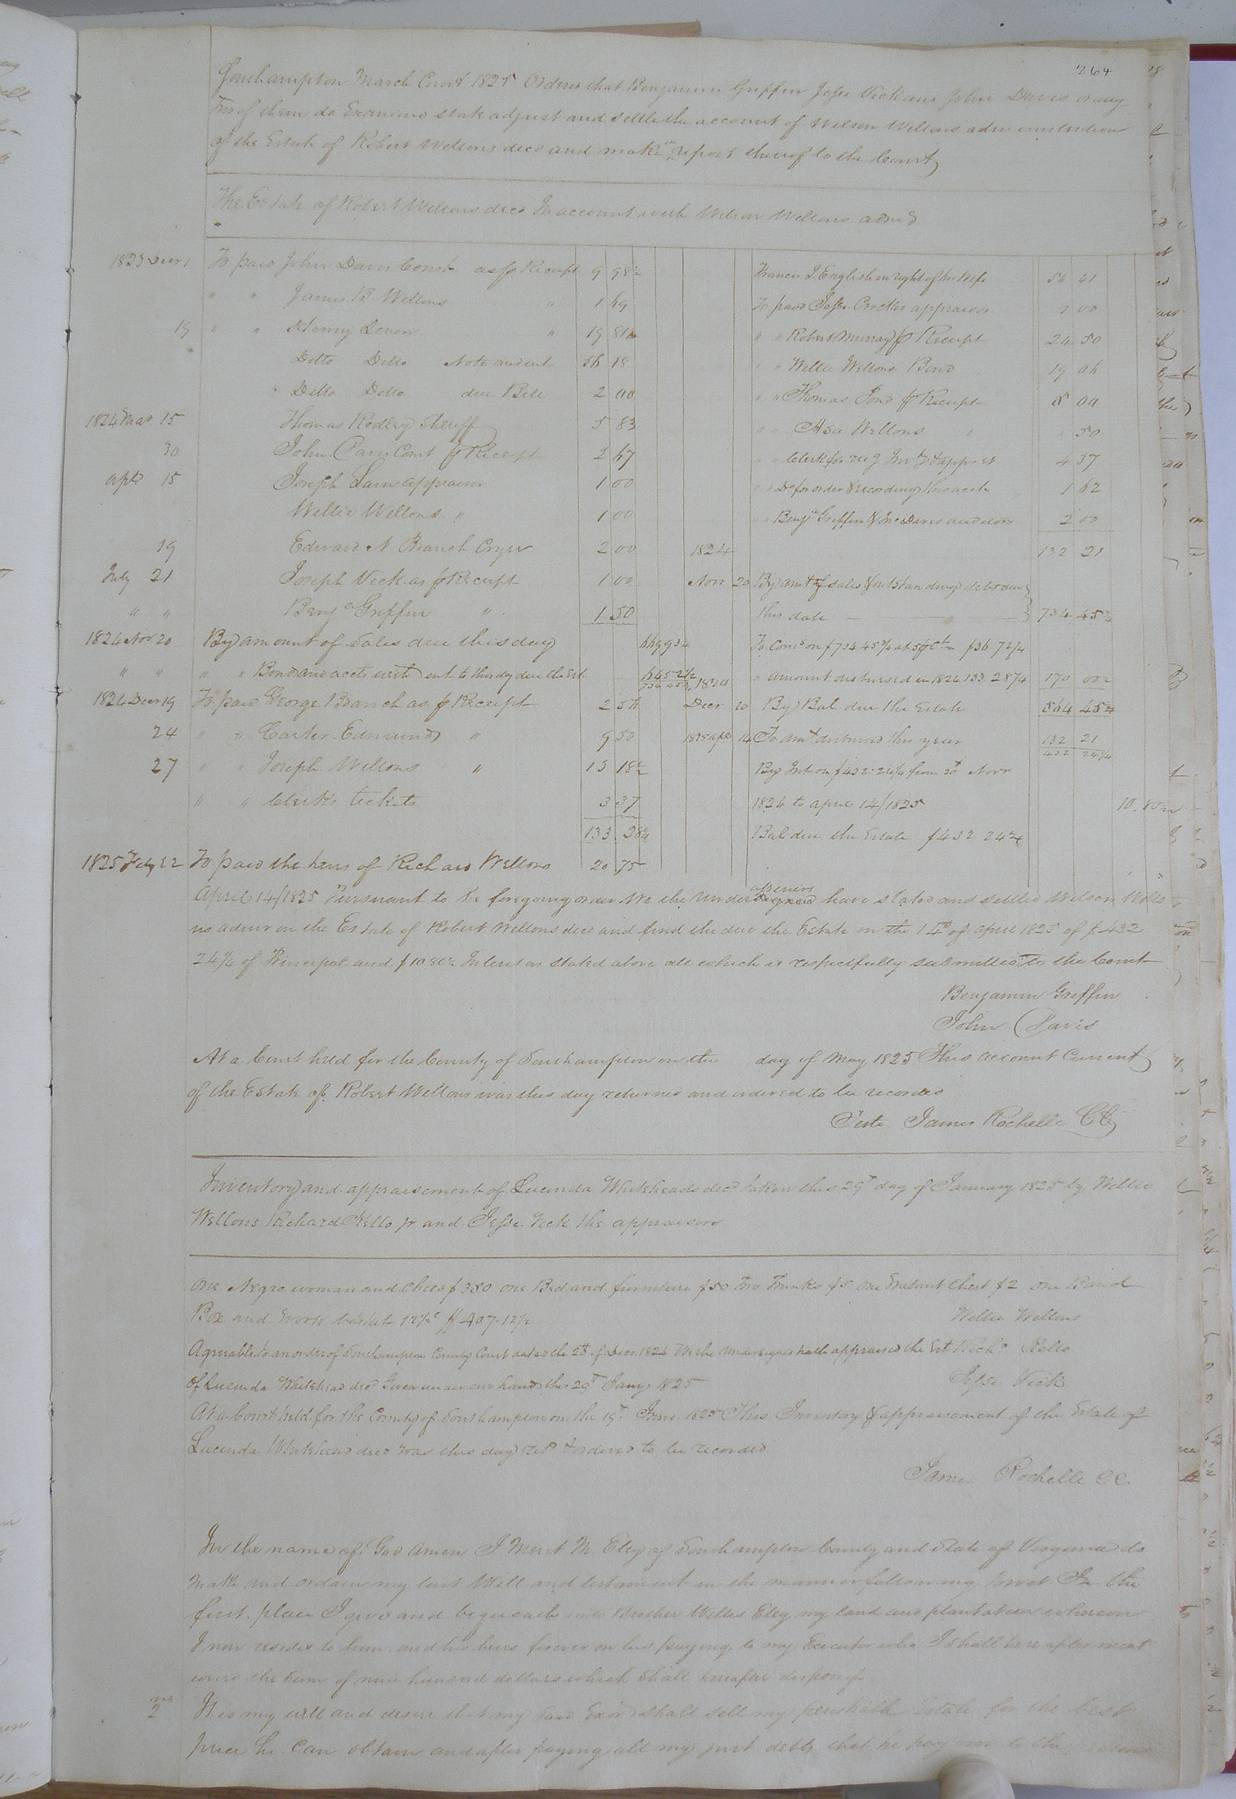 264
Southampton March Court 1825 Orders that Benjamin Griffin Jesse Vick and John Davis or any
two of them do Examine state adjust and settle the account of Wilson Wellons administration
of the Estate of Robert Wellons decd and make report thereof to the Court
The Estate of Robert Wellons decd In account with Wilson Wellons admr
1823 Decr 1 To paid John Davis Const as pr Receipt 9 98½
" " James B Wellons " 1 69
19 " " Henry Dever " 19 81
Ditto Ditto Note and int 56 18
" Ditto Ditto due Bill 2 00
1824 Mar 15 Thomas Ridley Sheriff 5 83
30 John Carr Const pr Receipt 2 67
Apl 15 Joseph Lain appraiser 1 00
Willie Wellons " 1 00
19 Edward N. Branch Cryer 2 00
July 21 Joseph Vick as pr Receipt 1 00
" " Benja Griffin " 1 50
1824 Nov 20 By amount of Sales due this day
" " " " Bonds and accts with int to this day due the Est
1824 Decr 19 To paid George Branch as pr Receipt 2 56
24 " " Carter Edmunds " 9 50
27 " " Joseph Wellons " 13 18½
" " Clerks tickets 3 37
133 28¼
1825 Feby 22 To paid the heirs of Richard Wellons 20 75
Francis J English in right of his Wife 56 41
To paid Jesse Crocker appraiser 1 00
" " Robert Murray pr Receipt 24 50
" " Willie Wellons Bond 19 06
" " Thomas Pond pr Receipt 8 00
" " Asa Wellons " 50
" " Clerk for recg Invty & appr &c 4 37
" " Do for order & recording this acct 1 62
" " Benja Griffin & Jno Davis auditors 2 00
132 21
1824 Novr 20 By amt of sales & outstanding debts due
this date 734 45¾
To Coms on $734 45¾ at 5 pr Ct $36 72¼
" amount disbursed in 1824 133 28¼ 170 00½
1824 Decr 20 By Bal due the Estate 564 45¼
1825 Apl 14 To amt disbursed this year 132 21
432 24¼
By Int on $432.24¼ from 20th Novr
1824 to April 14/1825 10.80½
Bal due the Estate $432 24¼
April 14/1825 Pursuant to the foregoing order We the undersigned have stated and settled Wilson Wello
ns admr on the Estate of Robert Wellons decd and find the due the Estate on the 14th of April 1825 of $432
24¼ of Principal and $10.80½ Interest as stated above all which is respectfully submitted to the Court
Benjamin Griffin
John Davis
At a Court held for the County of Southampton on the day of May 1825 This account Current
of the Estate of Robert Wellons was this day returned and ordered to be recorded
Teste James Rochelle CC
Inventory and appraisement of Lucinda Whitehead decd taken this 29th day of January 1825 by Willie
Wellons Richard Kello Jr and Jesse Vick the appraisers
One Negro woman and Chloe $350 one Bed and furniture $50 Two Trunks $5 one Walnut Chest $2 one Band
Box and work basket 12½c $407.12½
Willie Wellons
Agreeable to an order of Southampton County Court dated the 20 of Decr 1824 We the Undersigned hath appraised the Est
Richd Kello
of Lucinda Whitehead decd Given under our hands this 29th Jany 1825
Jesse Vick
At a Court held for the County of Southampton on the 19th June 1825 This Inventory & appraisement of the Estate of
Lucinda Whitehead decd was this day retd & ordered to be recorded
James Rochelle CC
In the name of God Amen I M. Eley of Southampton County and State of Virginia do
make and ordain my last Will and testament in the manner following In the
first place I give and bequeath unto Brother Willis Eley my land and plantation whereon
I now reside to him and his heirs forever on his paying to my Executor who I shall here after ment
ioned the sum of nine hundred dollars which shall hereafter dispose of
2nd It is my will and desire that my said Exor shall sell my perishable Estate for the best
price he can obtain and after paying all my just debts that he pay over to the